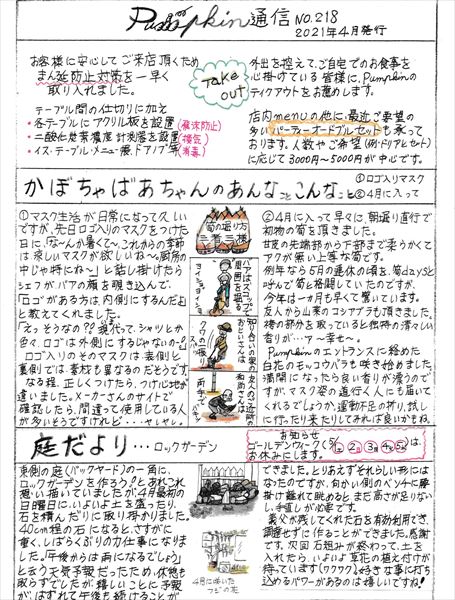 Pumpkin通信 NO.218
2021年4月発行
お客様に安心してご来店頂くため
まん延防止対策を一早く
取り入れました。
テーブル間の仕切りに加え
・各テーブルにアクリル板を設置(飛沫防止)
・二酸化炭素濃度計測器を設置(換気)
・イス・テーブル・メニュー表・ドアノブ等(消毒)
Take out
外出を控えて、ご自宅でのお食事を
心掛けている皆様に、Pumpkinの
テイクアウトをお薦めします。
店内menuの他に、最近ご要望の
多いパーティーオードブルセットも承って
おります。人数やご希望(例・ドリアレセット)
に応じて3000円〜5000円が中心です。
かぼちゃばあちゃんのあんなこと こんなこと
①ロゴ入りマスク
②4月に入って
①マスク生活が日常になって久しい
ですが、先日ロゴ入りのマスクをつけた
日に、「な〜んか暑くて〜これからの季節
は涼しいマスクが欲しいね〜厨房の
中じゃ特にね〜」と話し掛けたら
シェフがババの顔を覗き込んで、
「ロゴがある方は内側にするんだよ」
と教えてくれました。
「えっそうなの??現代って、シャツとか
色々、ロゴは外側にするじゃないの〜」
ロゴ入りのそのマスクは表側と
裏側では、素材も異なるのだそうです
なる程、正しくつけたら、つけ心地が
違いました。メーカーさんのサイトで
確認したら、間違って使用している人
が多いそうですけれど・・・ヤレヤレ。
筍の掘り方
②4月に入って早々に、朝掘り直行で
初物の筍を頂きました。
甘皮の先端部から下部まで柔らかくて
アクが無い上等な筍です。
例年なら5月の連休の頃を、筍daySと
呼んで筍と格闘していたのですが、
今年は一ヶ月も早くて驚いています。
友人から山菜のコシアブラも頂きました。
袴の部分を取っていると独特の清々しい
香りが…ア〜幸せ〜。
Pumpkinのエントランスに絡めた
白花のモッコウバラも咲き始めました。
満開になったら良い香りが漂うのです
が、マスク姿の道行く人にも届いて
くれるでしょうか。運動不足の折り、試し
に行ったり来たりしてみれば良いかもね。
庭だより…ロックガーデン
お知らせ
ゴールデンウィークは5/1 2 3 4 5は
お休みにします。
東側の庭(バックヤード)の一角に、
ロックガーデンを作ろう!とあれこれ
想い描いていましたが、4月最初の
日曜日に、いよいよ土を盛ったり、
石を積んだりに取り掛かりました。
40cm程の石になると、さすがに
重く、しばらくぶりの力仕事になりま
した。「午後からは雨になるでしょう」
と云う天気予報だったため、休憩も
取らずでしたが、嬉しいことに予報
が、はずれて午後も続けることが
4月に咲いた
フジの花
できました。とりあえずそれらしい形には
なったのですが、向かい側のベンチに腰
掛け離れて眺めるとまだ高さが足りない
し、手直しが必要です。
義父が残してくれた石を有効利用でき、
調達せずに作ることができました。感謝
です。次回石組みが終わって、土を
入れたら、いよいよ草花の植え付けが
待っています(ワクワク)好きな事に打ち
込めるパワーがあるのは嬉しいですね!